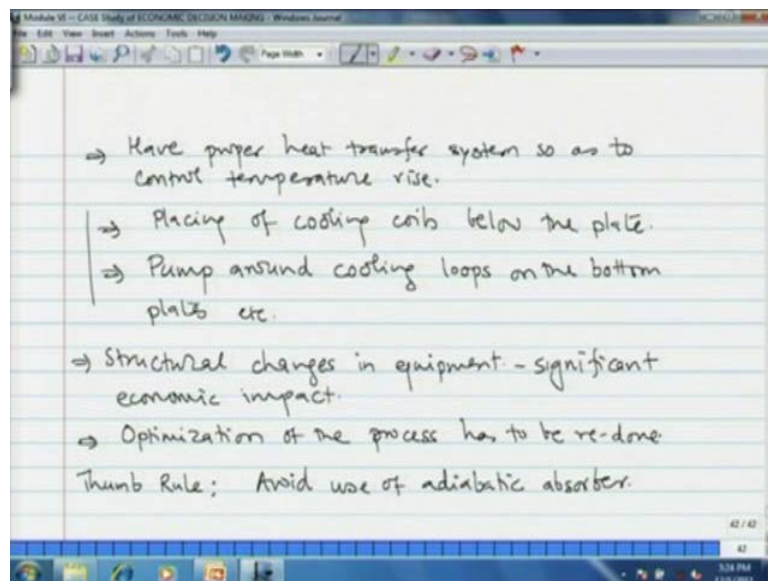 Module VI - CASE Study of ECONOMIC DECISION MAKING - Windows Journal
File Edit View Insert Actions Tools Help
Page Width
⇒ Have proper heat transfer system so as to
control temperature rise.
⇒ Placing of cooling coils below the plate.
⇒ Pump around cooling loops on the bottom
plates etc.
⇒ Structural changes in equipment - significant
economic impact.
⇒ Optimization of the process has to be re-done
Thumb Rule: Avoid use of adiabatic absorber.
42 / 42
42
5:24 PM